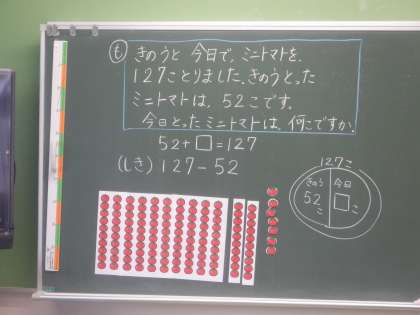 も
きのうと 今日で、ミニトマトを、
127ことりました。きのうとった
ミニトマトは、52こです。
今日とったミニトマトは、何こですか。
52+□=127
(しき)127-52
127こ
きのう 今日
52こ □こ